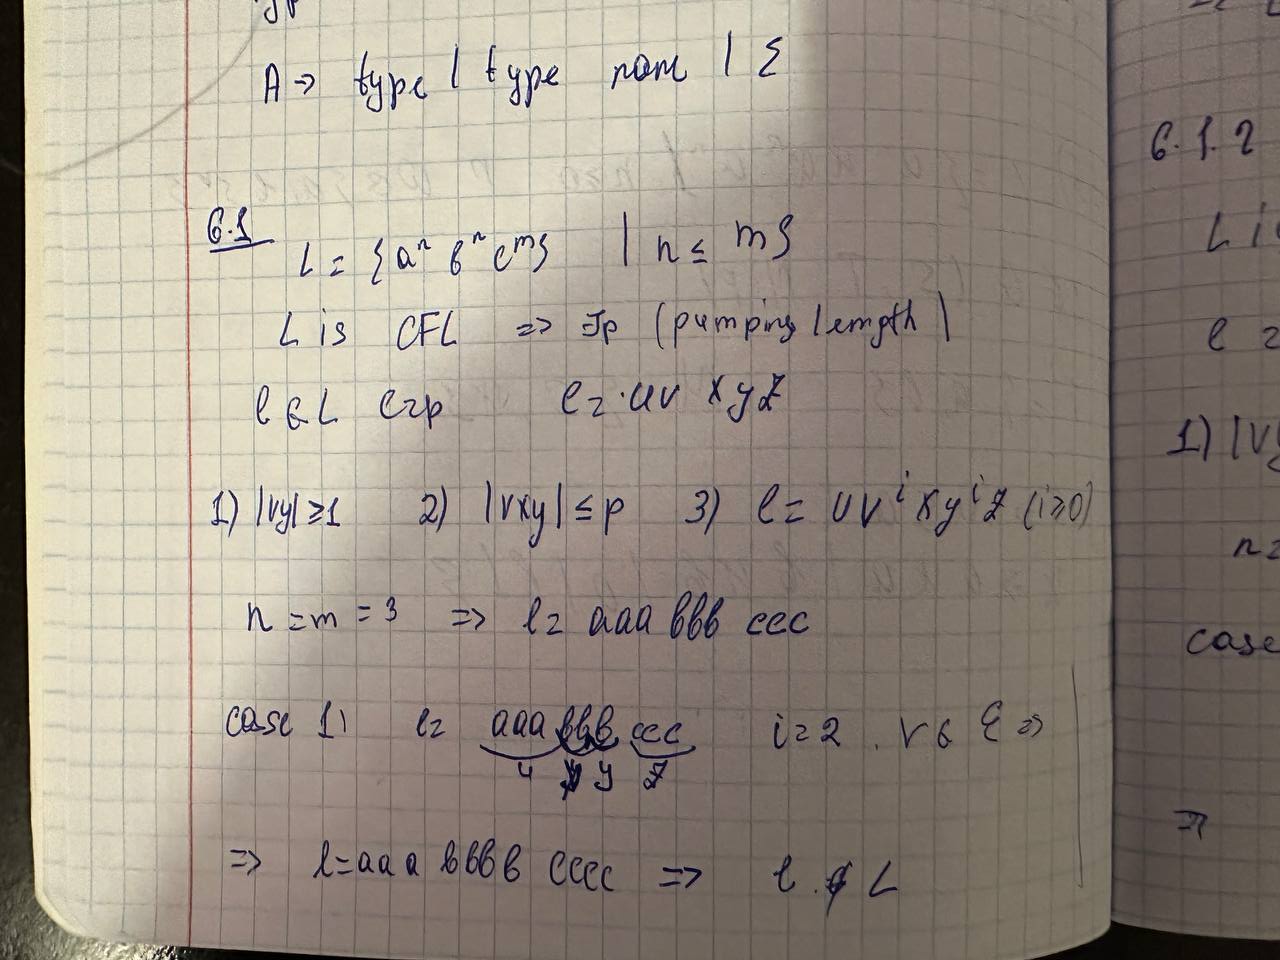 A => type | type nam | ε
6.1
L = {aⁿ bⁿ cᵐ} | n ≤ m}
L is CFL => ∃p (pumping length)
l ∈ L l=p l = uv xyz
1) |vy| ≥ 1 2) |vxy| ≤ p 3) l = uvⁱxyⁱz (i≥0)
n = m = 3 => l = aaa bbb ccc
case 1) l = aaa bbb ccc i=2 . v ∈ ε =>
u y z
=> l = aaa bbbb cccc => l ∉ L
6.1.2
L i
l =
1) |vy
n =
case
=>